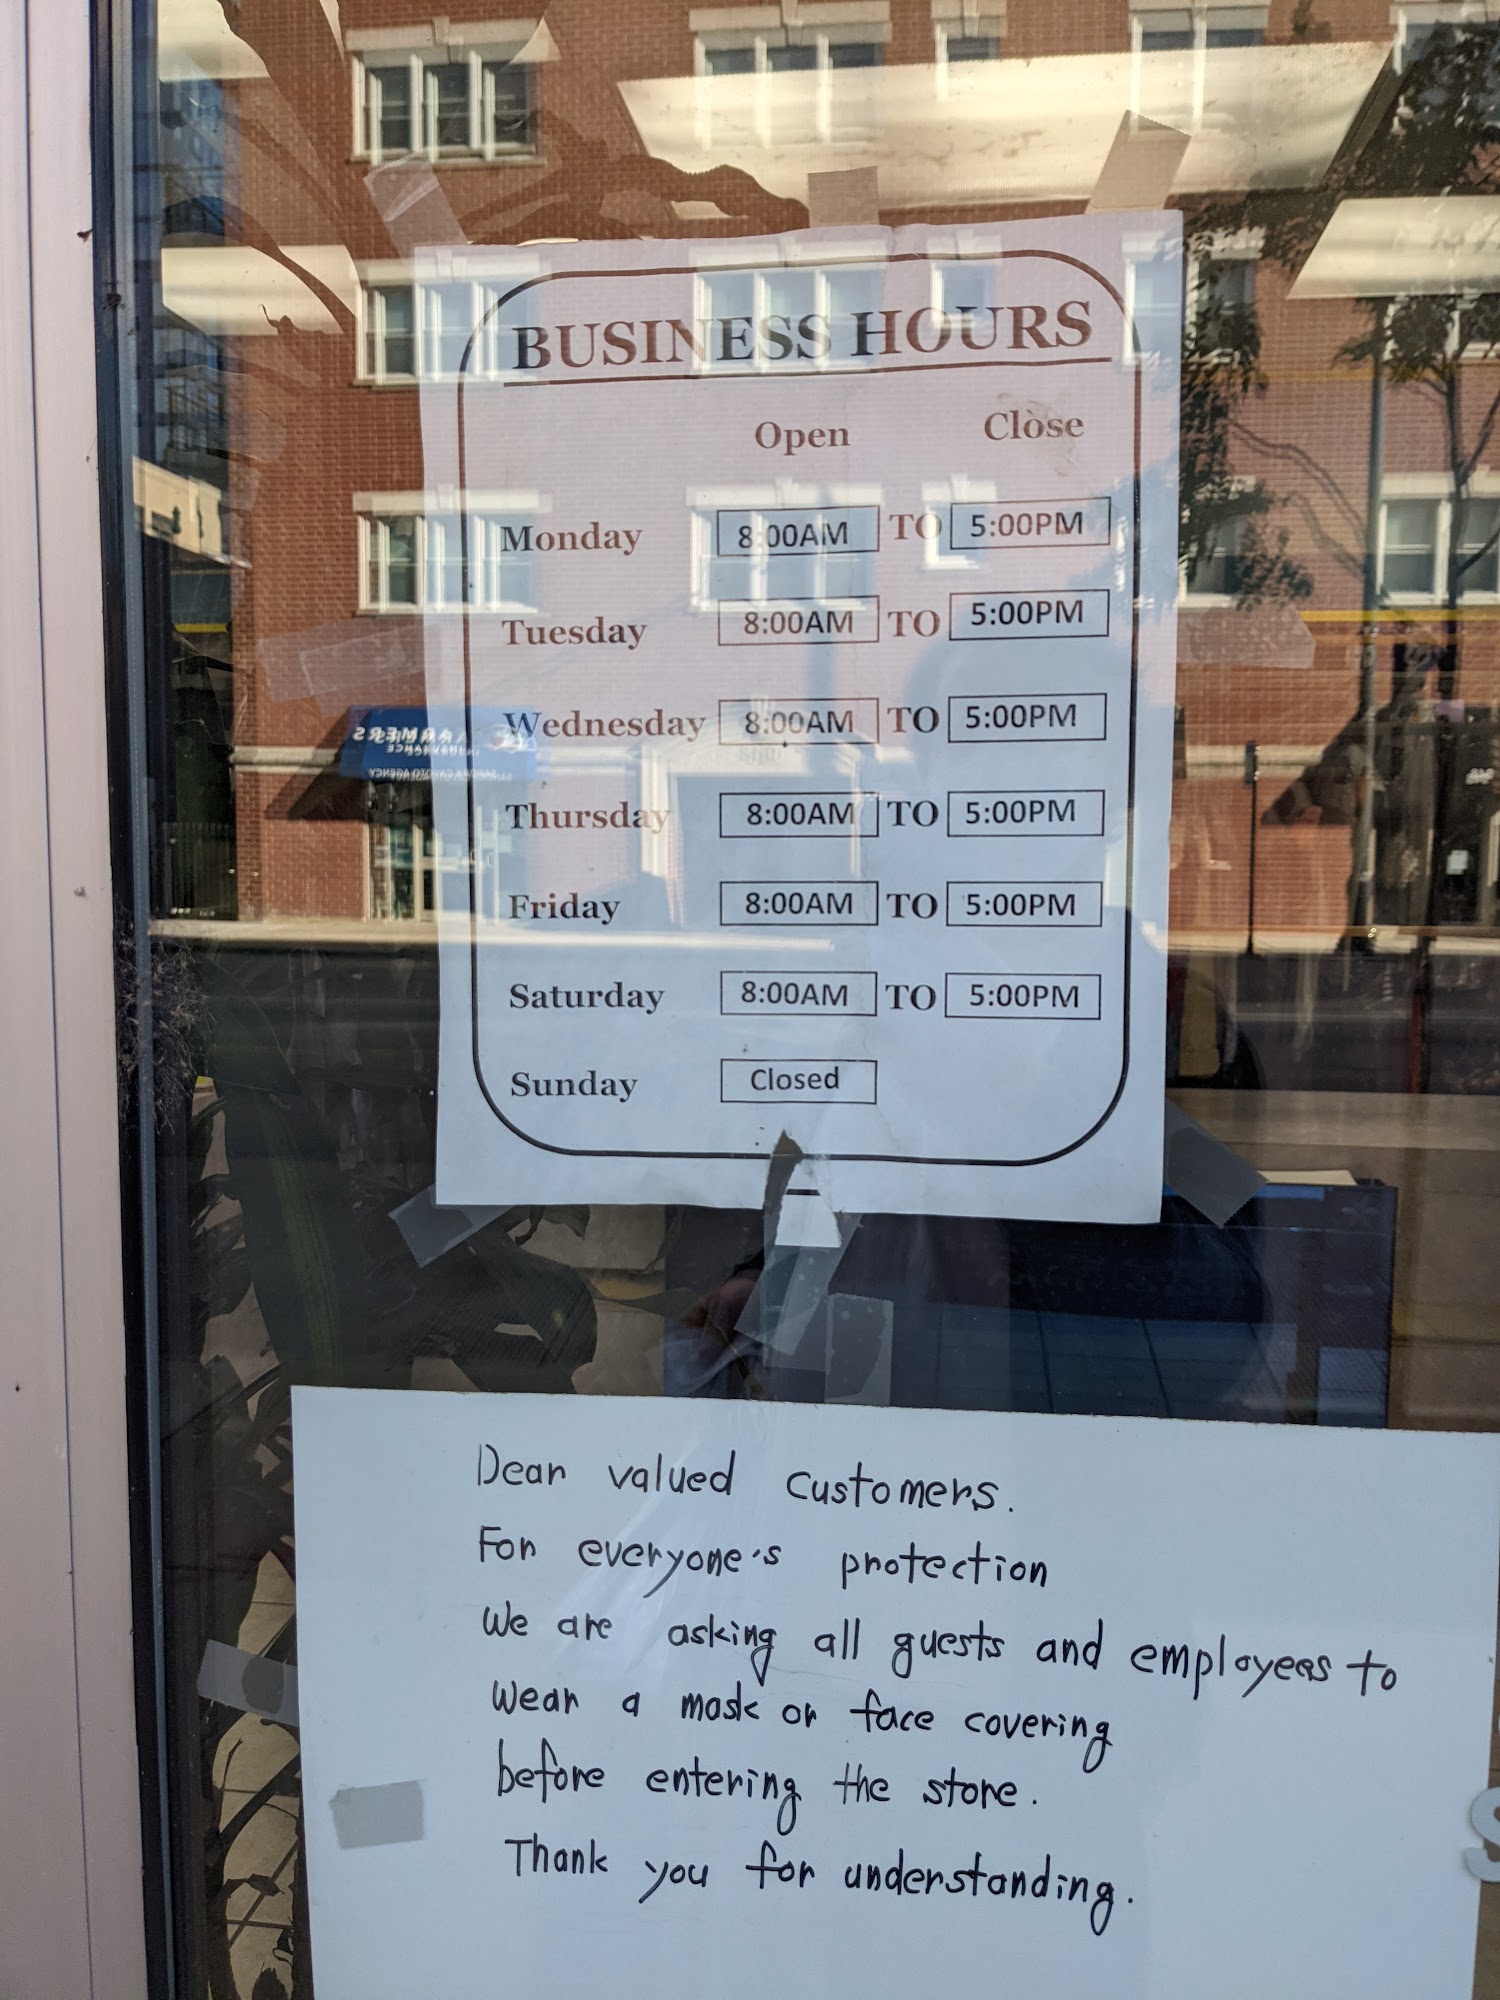 BUSINESS HOURS
Open Close
Monday 8:00AM TO 5:00PM
Tuesday 8:00AM TO 5:00PM
Wednesday 8:00AM TO 5:00PM
Thursday 8:00AM TO 5:00PM
Friday 8:00AM TO 5:00PM
Saturday 8:00AM TO 5:00PM
Sunday Closed
FARMERS
INSURANCE
Dear valued customers.
For everyone's protection
We are asking all guests and employees to
wear a mask or face covering
before entering the store.
Thank you for understanding.